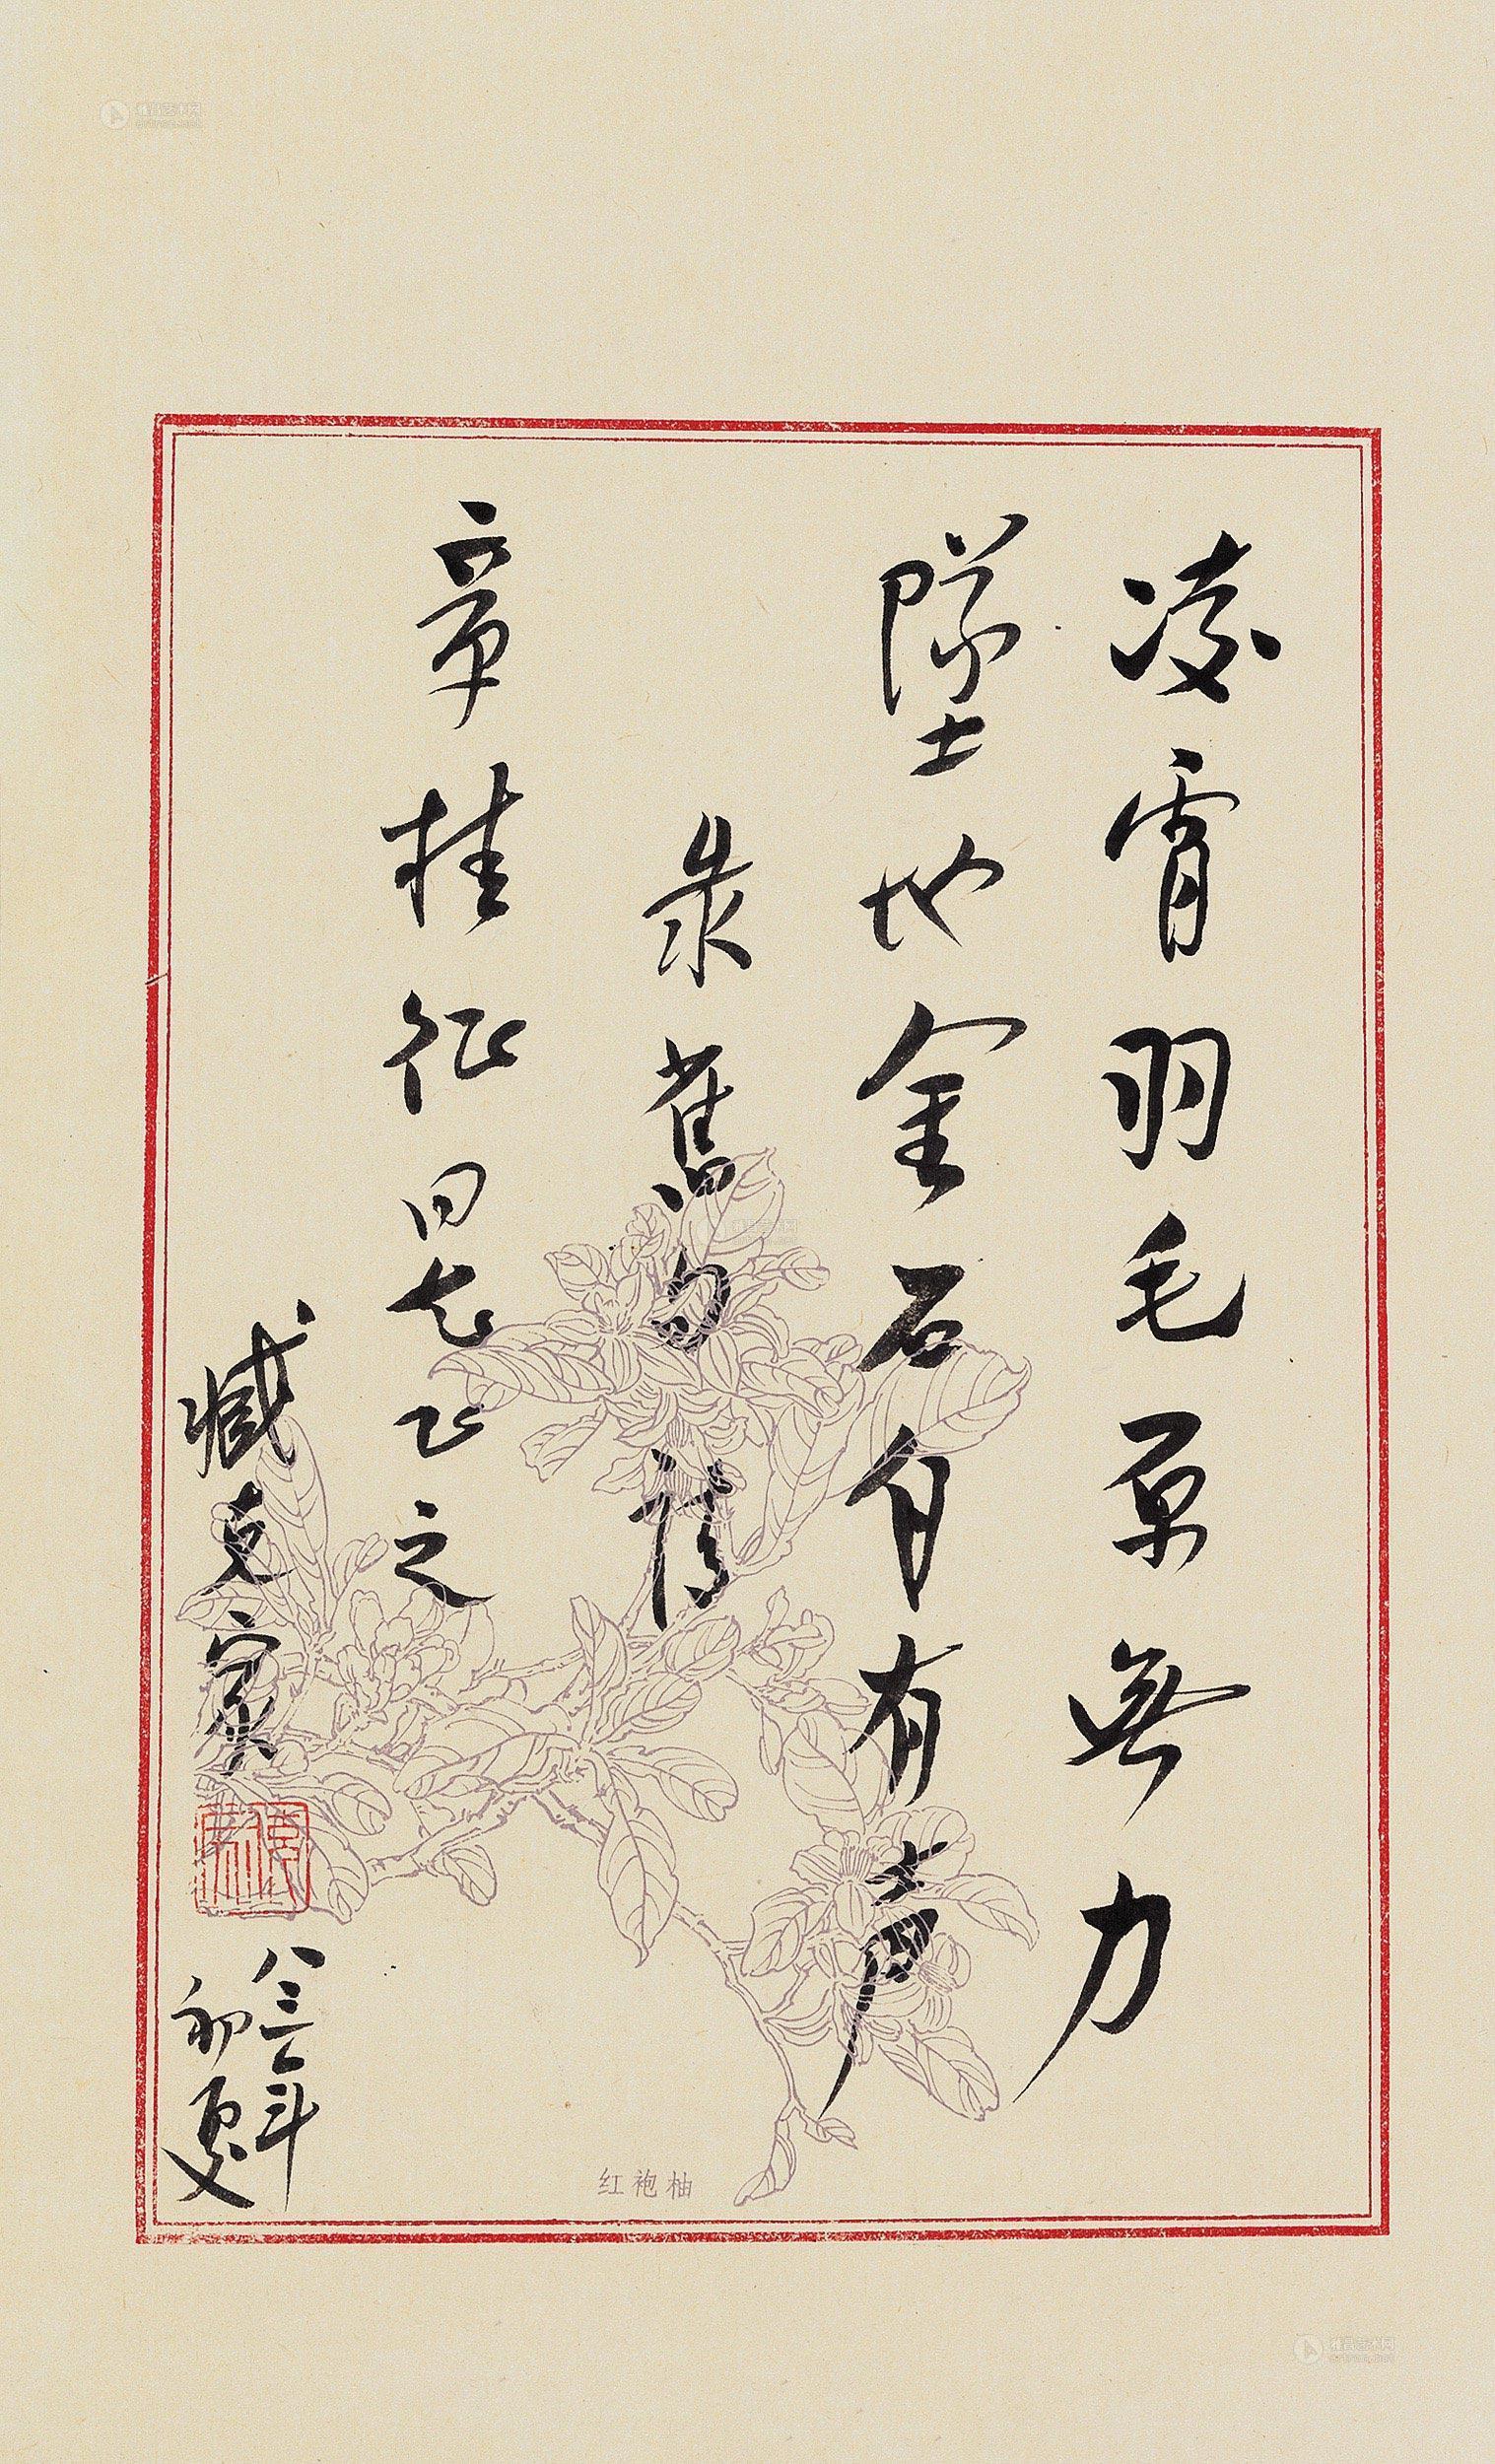 凌霄羽毛原無力
墜地金石自有声
录舊句請
章桂征同志正之
臧克家
八三年
初夏
红袍柚